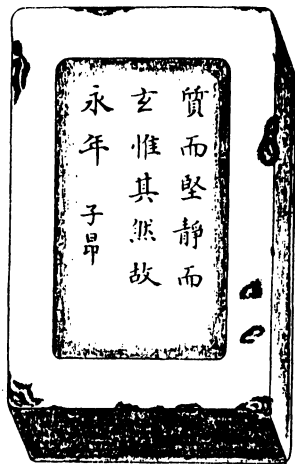 質而堅靜而
玄惟其然故
永年 子昂